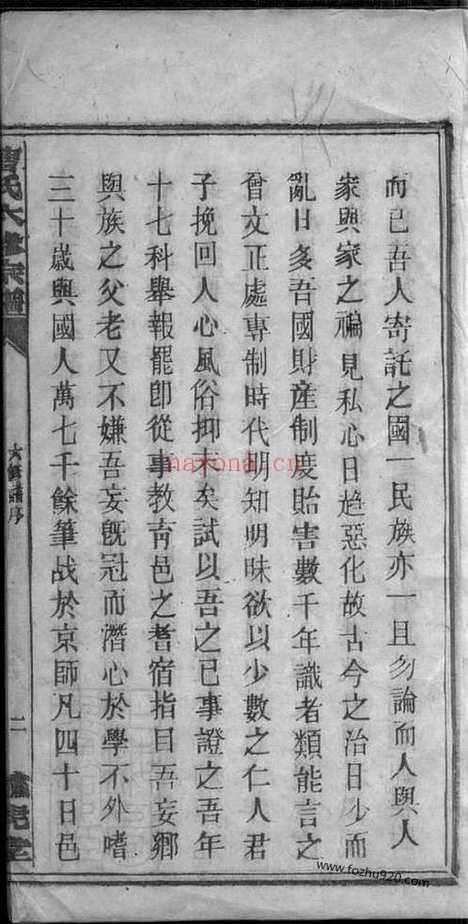 而已吾人寄託之國一民族亦一且勿論而人與人
家與家之褊見私心日趋惡化故古今之治日少而
亂日多吾國財産制度貽害數千年識者類能言之
曾文正處專制時代明知明昧欲以少數之仁人君
子挽回人心風俗抑末矣試以吾之已事證之吾年
十七科舉報罷卽從事教育邑之耆宿指目吾妄鄉
與族之父老又不嫌吾妄旣冠而潛心於學不外嗜
三十歲與國人萬七千餘筆战於京師凡四十日邑
氏六修宗譜
六修譜序
二
naxonai.cn
www.fozhu920.com